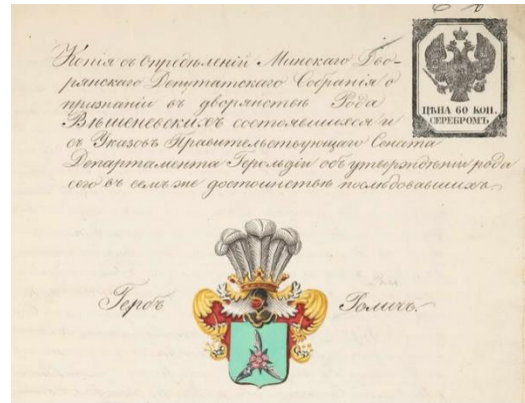 Копія съ Опредѣленій Минскаго Дво-
рянскаго Депутатскаго Собранія о
признаніи въ дворянствѣ Рода
Вѣшеневскихъ состоявшихся и
съ Указовъ Правительствующаго Сената
Департамента Герольдіи объ утвержденіи рода
сего въ семъ же достоинствѣ послѣдовавшихъ.
ЦѢНА 60 КОП.
СЕРЕБРОМЪ.
Гербъ